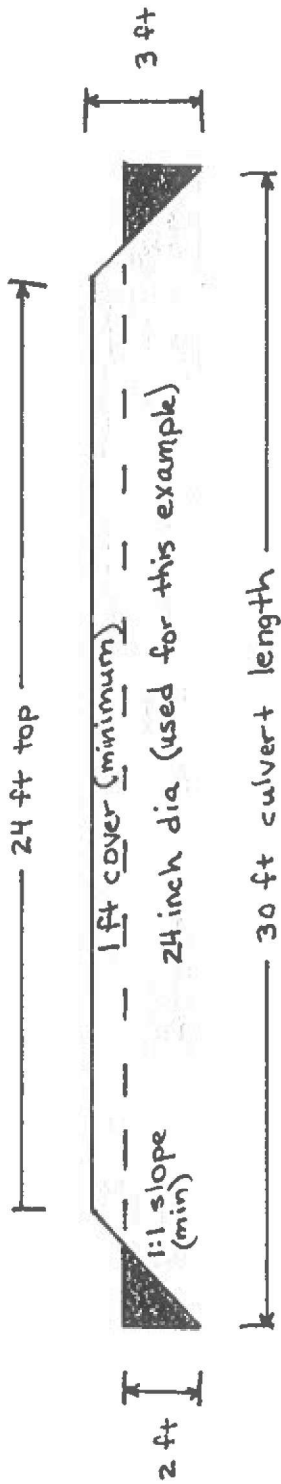 24 ft top
1 ft cover (minimum)
3 ft
2 ft
1:1 slope
(min)
24 inch dia (used for this example)
30 ft culvert length